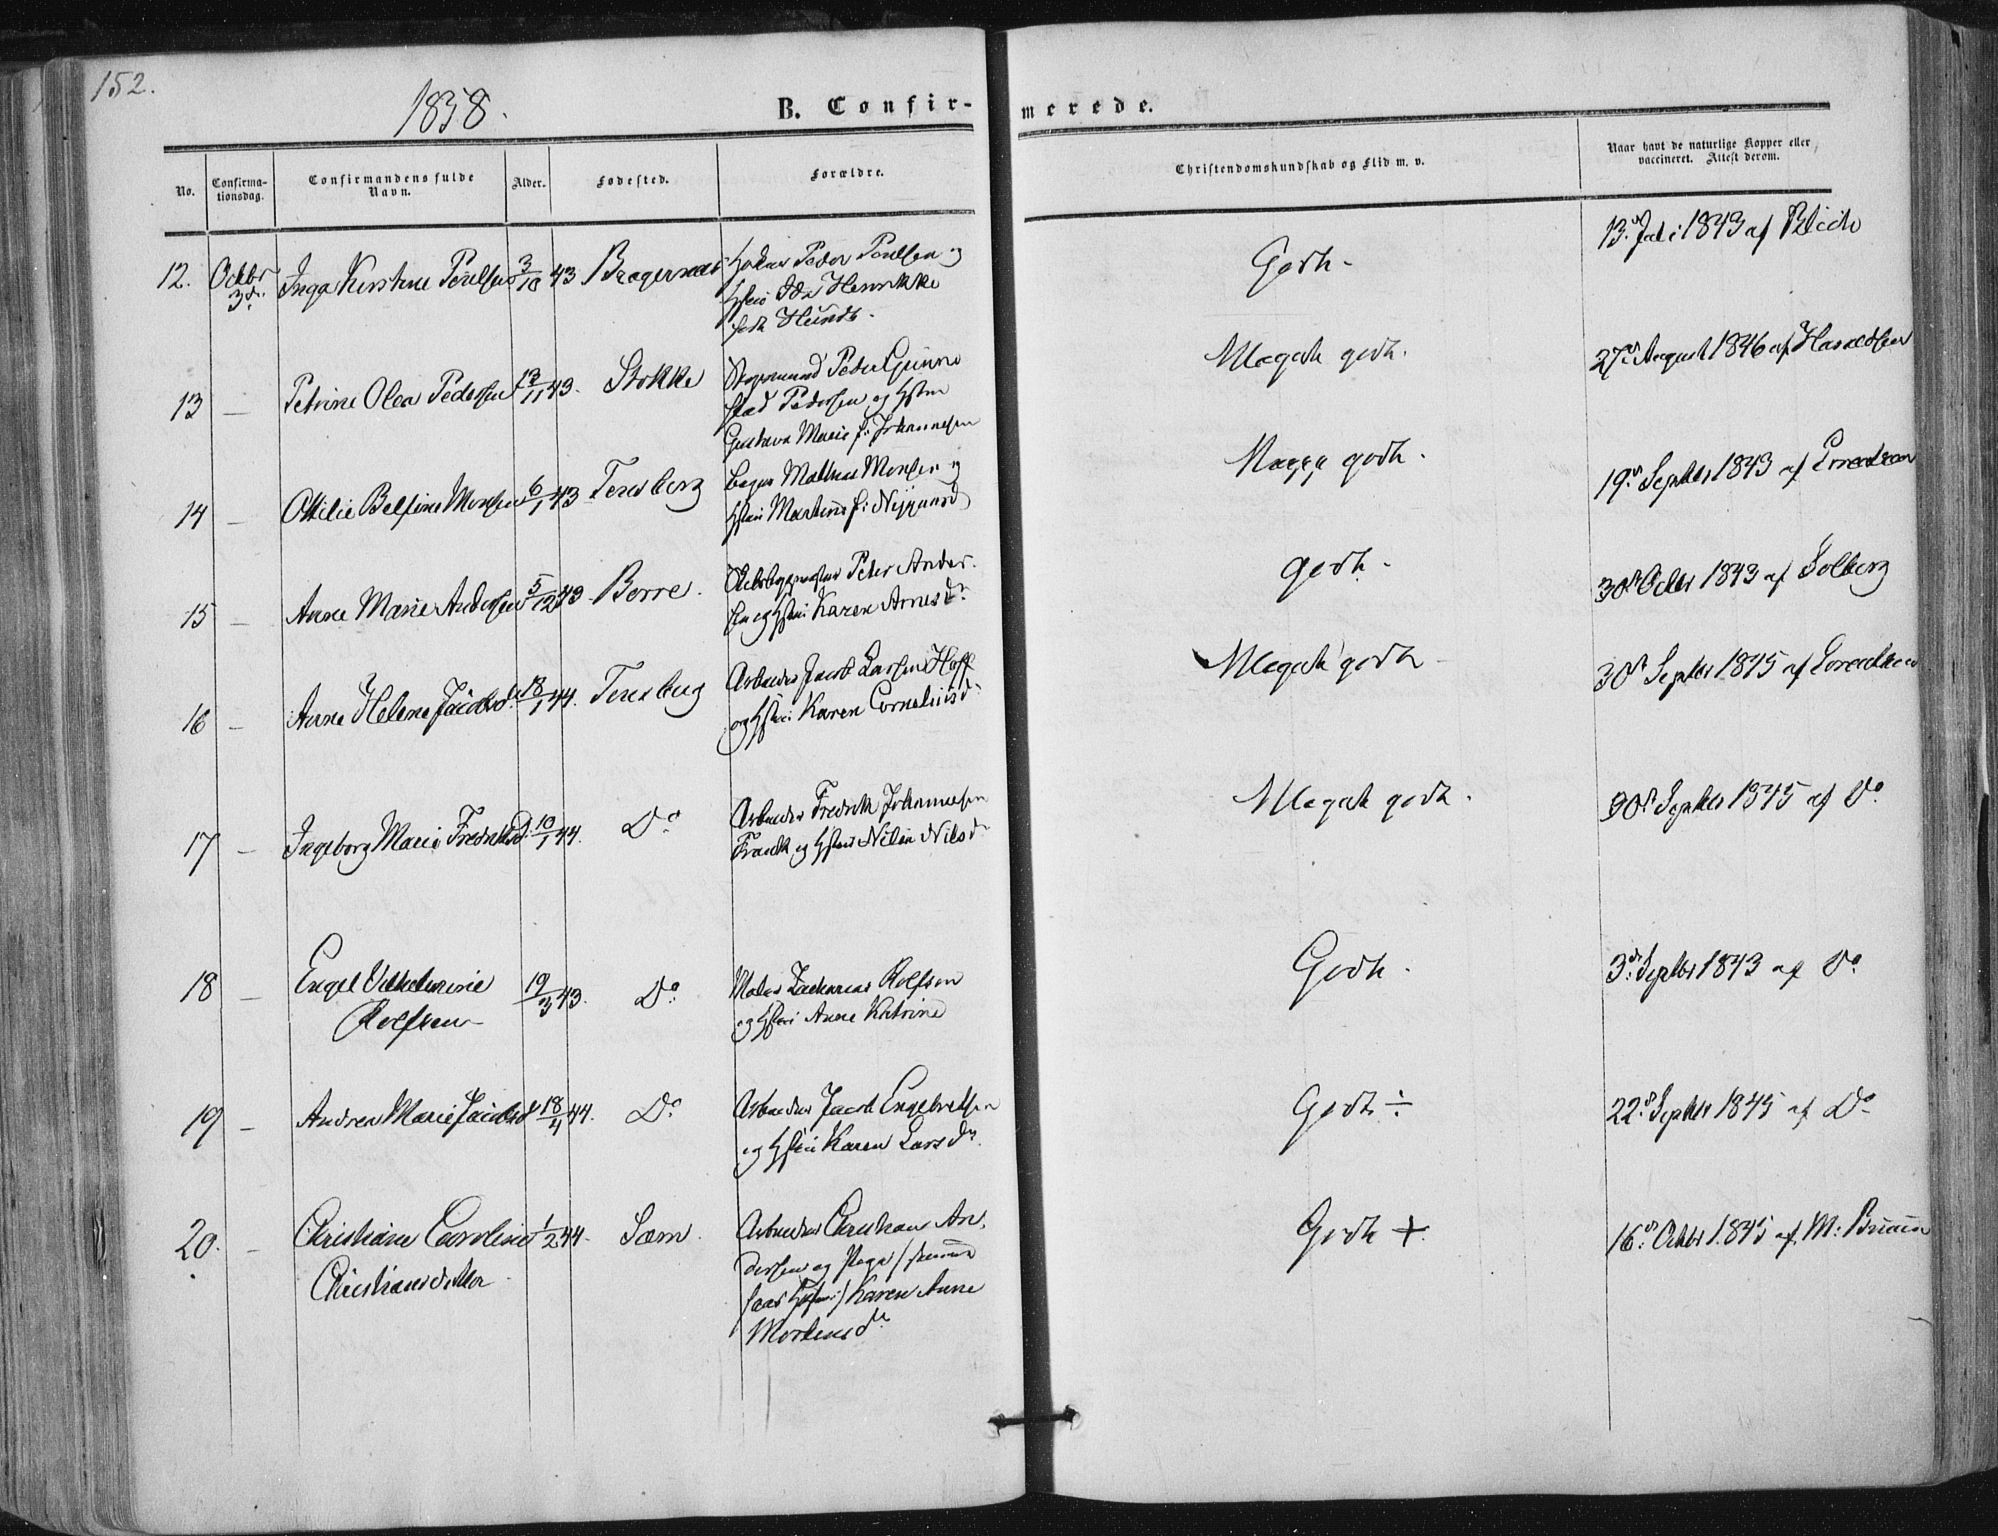 152.
1858.
B. Confirmerede.
No.
Confirma-
tionsdag.
Confirmandens fulde
Navn.
Alder.
Fødested.
Forældre.
Christendomskundskab og Flid m. v.
Naar havt de naturlige Kopper eller
vaccineret. Attest derom.
12. Octbr 3d. Inga Kirstine Poulsen 3/10 43 Bragernæs
Peder Poulsen og
Hustru Ida Henrikke
født Hundt.
Godt.
13. Juli 1843 af Blich
13 — Petrine Olea Pedersen 12/11 43. Stokke
Styrmand Peder Gunne
stad Pedersen og Hstru
Gustava Marie f: Johannesen
Meget godt.
27de August 1846 af Haraldsen
14 — Ottilie Belfine Monsen 6/1 43 Tønsberg
Bager Mathias Monsen og
Hstru Martine f: Nygaard
Meget godt.
19. Septbr 1843 af Lorentzen
15 — Anne Marie Andersen 5/12 43 Borre.
Skibsbygmester Peter Ander-
sen og Hstru Karen Arnesdr.
godt.
30d Octbr 1843 af Solberg
16 — Anne Helene Jacobsd. 18/1 44. Tønsberg
Arbeider Jacob Larsen Hoff
og Hstru Karen Corneliusd.
Meget godt
30d Septbr 1845 af Lorentzen
17 — Ingeborg Marie Fredriksd: 10/1 44. Do
Arbeider Fredrik Johannesen
og Hstru Nilsd.
Meget godt.
30d Septbr 1845 af Do.
18 — Engel Vilhelmine
Rolfsen
19/3 43. Do.
Maler Zacharias Rolfsen
og Hstru Anne Katrine
Godt.
3d. Septbr 1843 af Do.
19 — Andrea Marie Jacobsd 18/4 44. Do.
Arbeider Jacob Engebretsen
og Hstru Karen Larsdr.
Godt ÷
22d. Septbr 1845 af Do
20. — Christiane Caroline
Christiansdatter.
1/2 44. Sæm.
Arbeider Christian An-
dersen og Pige /
Karen Anne
Mortensdr
Godt +.
16d. Octbr 1845 af M: Bruun